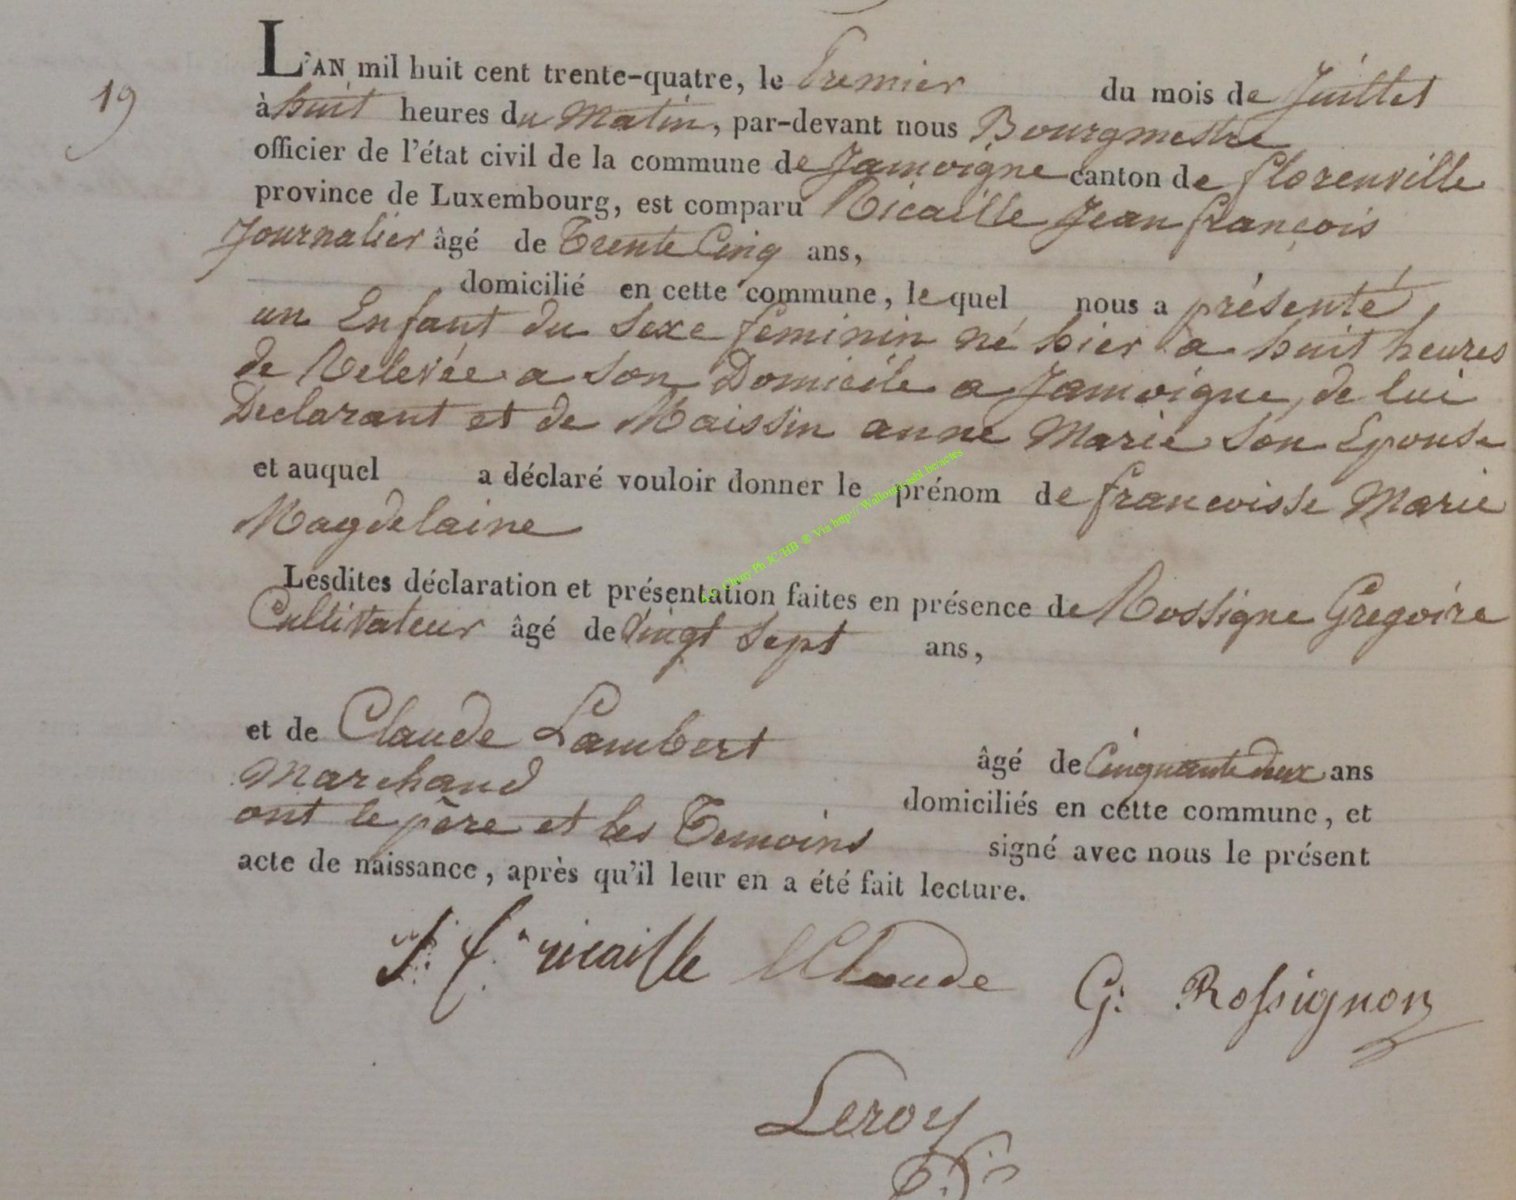 19
L'AN mil huit cent trente-quatre, le Premier du mois de Juillet
à huit heures du Matin, par-devant nous Bourgmestre
officier de l'état civil de la commune de Jamoigne canton de florenville
province de Luxembourg, est comparu Ricaille Jean françois
Journalier âgé de Trente Cinq ans,
domicilié en cette commune, lequel nous a présenté,
un Enfant du sexe feminin né hier a huit heures
de Relevée a son Domicile a Jamoigne, de lui
Declarant et de Maissin anne Marie son Epouse
et auquel a déclaré vouloir donner le prénom de francoisse Marie
Magdelaine
Lesdites déclaration et présentation faites en présence de Rossigne Gregoire
Cultivateur âgé de vingt sept ans,
et de Claude Lambert âgé de Cinquante deux ans
Marchand domiciliés en cette commune, et
ont le père et les Temoins signé avec nous le présent
acte de naissance, après qu'il leur en a été fait lecture.
J. f. ricaille Claude G: Rossignon
Leroy